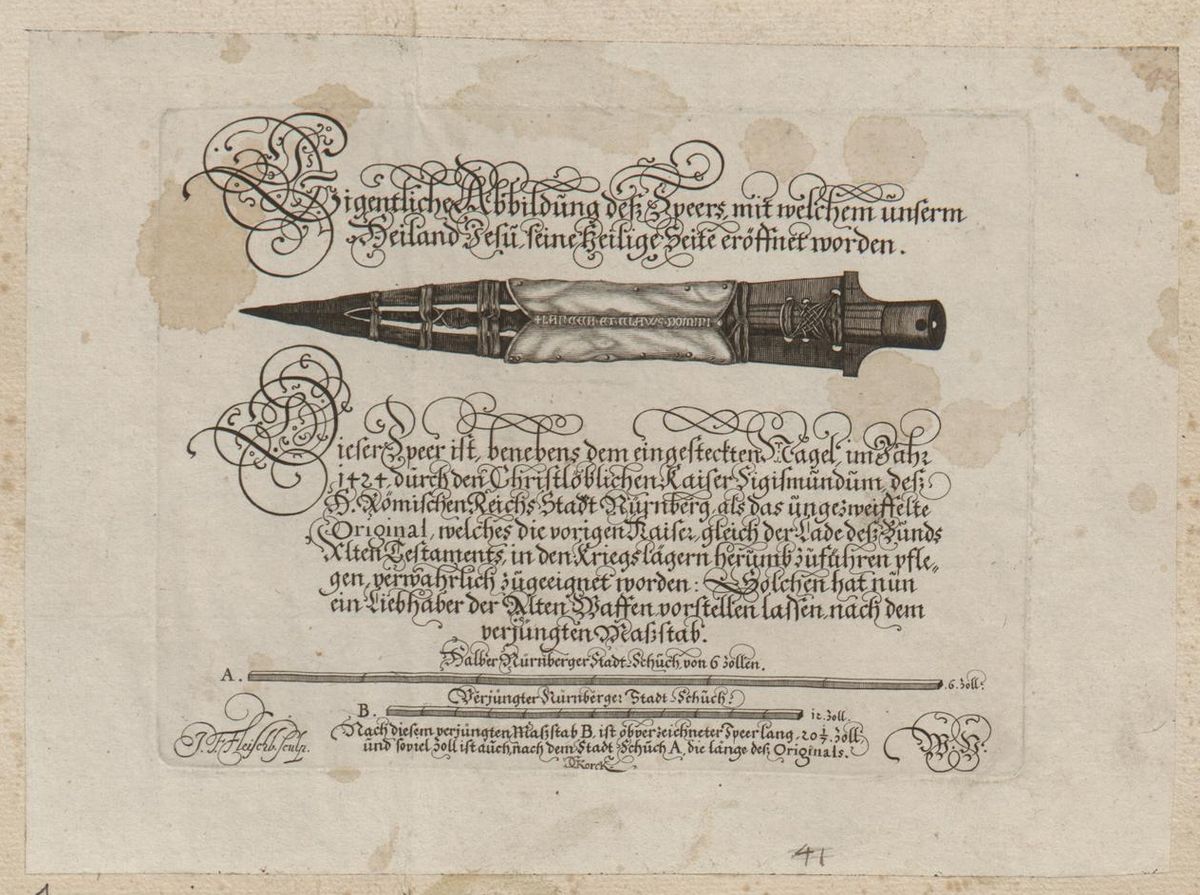 Eigentliche Abbildung deß Speers, mit welchem unserm
Heiland Jesu, seine Heilige Seite eröffnet worden.
+LANCEA·ET·CLAVS·DOMINI
Dieser Speer ist, benebens dem eingesteckten Nagel, im Jahr
1424. durch den Christlöblichen Kaiser Sigismundum, deß
H. Römischen Reichs Stadt Nürnberg, als das ungezweiffelte
Original, welches die vorigen Kaiser, gleich der Lade deß Bunds
Alten Testaments, in den Kriegslägern herumb zuführen pfle-
gen, verwahrlich zugeeignet worden: Solchen hat nun
ein Liebhaber der Alten Waffen vorstellen lassen, nach dem
verjüngten Maßstab.
Halber Nürnberger Stadt-Schuch, von 6 zollen.
A. 6. Zoll.
Verjüngter Nürnberger Stadt-Schuch.
B. 12. Zoll.
Nach diesem verjüngten Maßstab B, ist obverzeichneter Speer lang, 20½ Zoll,
und soviel Zoll ist auch, nach dem Stadt-Schuch A, die länge deß Originals.
J. F. Fleischb. sculp.
Korck
41